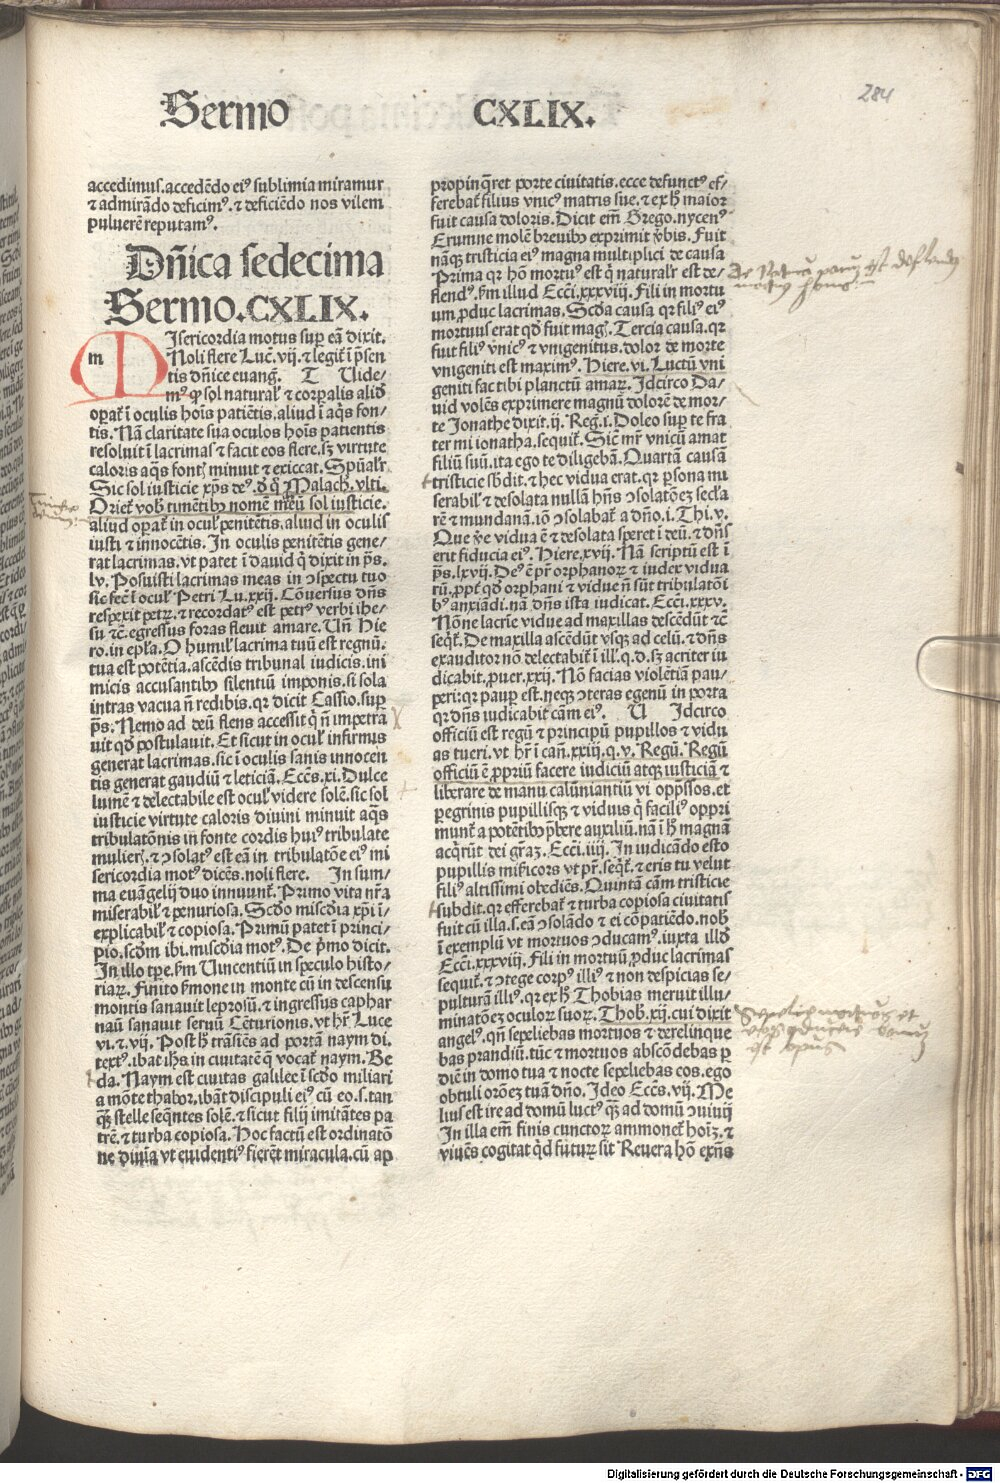 Sermo CXLIX.
284
accedimus. accedẽdo eiꝰ sublimia miramur
⁊ admirãdo deficimꝰ. ⁊ deficiẽdo nos vilem
puluerẽ reputamꝰ.
Dñica sedecima
Sermo.CXLIX.
m
MIsericordia motus suꝑ eã dixit.
Noli flere Luc̃. vij. ⁊ legit̃ ĩ p̃sen
tis dñice euang̃. T Uide-
mꝰ ꝙ sol natural̃ ⁊ corꝑalis aliđ
oꝑat̃ ĩ oculis hoĩs patiẽtis, aliud ĩ aq̃s fon/
tis. Nã claritate sua oculos hoĩs patientis
resoluit ĩ lacrimas ⁊ facit eos flere. sꝫ virtute
caloris aq̃s font̃ minuit ⁊ exiccat. Spũalr̃
Sic sol iusticie xp̃s deꝰ. đ q̃ Malach. vlti.
Oriet̃ vob̃ timẽtibꝰ nomẽ meũ sol iusticie.
aliud oꝑat̃ in ocul̃ penitẽtis, aliud in oculis
iusti ⁊ innocẽtis. In oculis penitẽtis gene/
rat lacrimas. vt patet ĩ dauid q̃ dixit in p̃s.
lv. Posuisti lacrimas meas in ɔspectu tuo
sic fec̃ ĩ ocul̃ Petri Lu. xxij. Cõuersus dñs
respexit petrꝫ. ⁊ recordatꝰ est petrꝰ verbi ihe/
su ⁊c̃. egressus foras fleuit amare. Un̄ Hie
ro. in epl̃a. O humil̃ lacrima tuũ est regnũ.
tua est potẽtia. ascẽdis tribunal iudicis. ini
micis accusantibꝰ silentiũ imponis. si sola
intras vacua ñ redibis. qr dicit Cassio. suꝑ
p̃s. Nemo ad deũ flens accessit q̃ ñ impetra
uit qđ postulauit. Et sicut in ocul̃ infirmis
generat lacrimas. sic ĩ oculis sanis innocen
tis generat gaudiũ ⁊ leticiã. Ecc̃s. xi. Dulce
lumẽ ⁊ delectabile est ocul̃ videre solẽ. sic sol
iusticie virtute caloris diuini minuit aq̃s
tribulatõnis in fonte cordis huiꝰ tribulate
mulier̃. ⁊ ɔsolatꝰ est eã in tribulatõe eiꝰ mi
sericordia motꝰ dicẽs. noli flere. In sum/
ma euãgelij duo innuunt̃. Primo vita nr̃a
miserabil̃ ⁊ penuriosa. Scđo misc̃dia xp̃i ĩ/
explicabil̃ ⁊ copiosa. Primũ patet ĩ princi/
pio. scđm ibi. misc̃dia motꝰ. De p̃mo dicit.
In illo tꝑe. ẞm Uincentiũ in speculo histo/
riarꝫ. Finito ẞmone in monte cũ in descensu
montis sanauit leprosũ. ⁊ ingressus caphar
naũ sanauit seruũ Cẽturionis. vt hr̃ Luce
vi. ⁊ vij. Post h̃ trãsiẽs ad portã naym di.
textꝰ. ibat ih̃s in ciuitatẽ q̃ vocat̃ naym. Be
da. Naym est ciuitas galilee ĩ scđo miliari
a mõte thabor. ibãt discipuli eiꝰ cũ eo. s. tan
q̃ꝫ stelle seq̃ntes solẽ. ⁊ sicut filij imitãtes pa
trẽ. ⁊ turba copiosa. Hoc factũ est ordinatõ
ne diuĩa vt euidentiꝰ fierẽt miracula. cũ aꝑ
propinq̃ret porte ciuitatis. ecce defunctꝰ ef/
ferebat̃ filius vnicꝰ matris sue. ⁊ ex h̃ maior
fuit causa doloris. Dicit em̃ Grego. nycenꝰ
Erumne molẽ breuibꝰ exprimit v̾bis. Fuit
nãqꝫ tristicia eiꝰ magna multiplici de causa
Prima qr hõ mortuꝰ est q̃ naturalr̃ est de/
flendꝰ. ẞm illud Ecc̃i. xxxviij. Fili in mortu
um ꝓduc lacrimas. Scđa causa qr filiꝰ eiꝰ
mortuus erat qđ fuit mag̃. Tercia causa. qr
fuit filiꝰ vnicꝰ ⁊ vnigenitus. dolor de morte
vnigeniti est maximꝰ. Hiere. vi. Luctũ vni
geniti fac tibi planctũ amarꝫ. Idcirco Da/
uid volẽs exprimere magnũ dolorẽ de mor/
te Ionathe dixit. ij. Reg. i. Doleo suꝑ te fra
ter mi ionatha. sequit̃. Sic mr̃ vnicũ amat
filiũ suũ. ita ego te diligebã. Quartã causã
tristicie sb̃dit. ⁊ hec vidua erat. qr ꝑsona mi
serabil̃ ⁊ desolata nullã hñs ɔsolatõeꝫ secl̃a
rẽ ⁊ mundanã. iõ ɔsolabat̃ a dño. i. Thi. v.
Que v̾e vidua ẽ ⁊ desolata speret ĩ deũ. ⁊ dñs
erit fiducia eiꝰ. Hiere. xvij. Nã scriptũ est ĩ
p̃s. lxvij. Deꝰ ẽ pr̃ orphanorꝫ ⁊ iudex vidua
rũ. ꝓpt̃ qđ orphani ⁊ vidue ñ sũt tribulatõi
bꝰ anxiãdi. nã dñs ista iudicat. Ecc̃i. xxxv.
Nõne lacrĩe vidue ad maxillas descẽdũt ⁊c̃
seq̃t̃. De maxilla ascẽdũt vsqꝫ ad celũ. ⁊ dñs
exauditor nõ delectabit̃ ĩ ill̃. q. d. sꝫ acriter iu
dicabit. ꝓuer. xxij. Nõ facias violẽtiã pau/
peri: qr pauꝑ est. neqꝫ ɔteras egenũ in porta
qr dñs iudicabit cãm eiꝰ. U Idcirco
officiũ est regũ ⁊ principũ pupillos ⁊ vidu
as tueri. vt hr̃ ĩ cañ. xxiij. q. v. Regũ. Regũ
officiũ ẽ ꝓpriũ facere iudiciũ atqꝫ iusticiã ⁊
liberare de manu calũniantiũ vi opp̃ssos. et
ꝑegrinis pupillisqꝫ ⁊ viduis q̃ faciliꝰ oppri
munt̃ a potẽtibꝰ p̃bere auxiliũ. nã ĩ h̃ magnã
acq̃rũt dei gr̃aꝫ. Ecc̃i. iiij. In iudicãdo esto
pupillis mis̃icors vt pr̃. seq̃t̃. ⁊ eris tu velut
filiꝰ altissimi obediẽs. Quintã cãm tristicie
subdit. qr efferebat̃ ⁊ turba copiosa ciuitatis
fuit cũ illa. s. eã ɔsolãdo ⁊ ei cõpatiẽdo. nob̃
ĩ exemplũ vt mortuos ɔducamꝰ. iuxta illđ
Ecc̃i. xxxviij. Fili in mortuũ ꝓduc lacrimas
sequit̃. ⁊ ɔtege corpꝰ illiꝰ ⁊ non despicias se/
pulturã illiꝰ. qr ex h̃ Thobias meruit illu/
minatõeꝫ oculorꝫ suorꝫ. Thob̃. xij. cui dixit
angelꝰ. qñ sepeliebas mortuos ⁊ derelinque
bas prandiũ. tũc ⁊ mortuos abscõdebas ꝑ
diẽ in domo tua ⁊ nocte sepeliebas eos. ego
obtuli orõeꝫ tuã dño. Ideo Ecc̃s. vij. Me
lius est ire ad domũ luctꝰ q̃ꝫ ad domũ ɔuiuij
In illa em̃ finis cunctorꝫ ammonet̃ hoĩꝫ. ⁊
viuẽs cogitat qđ futurꝫ sit Reuera hõ exñs
Digitalisierung gefördert durch die Deutsche Forschungsgemeinschaft - DFG